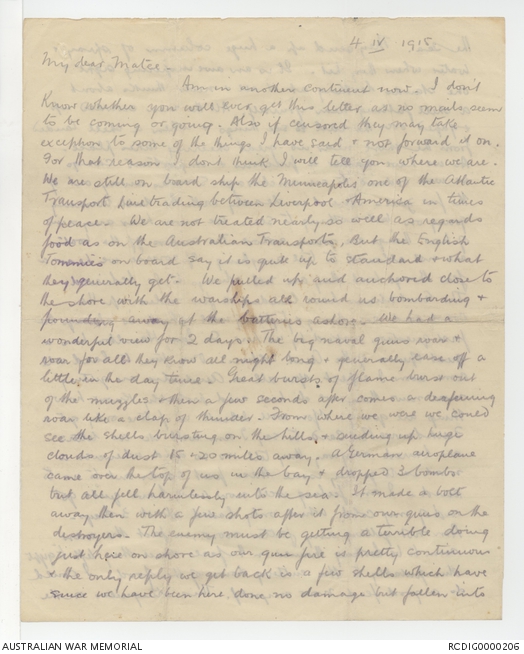 4 IV 1915
My dear Mater
Am in another continent now. I don't
know whether you will ever get this letter as no mails seem
to be coming or going. Also if censored they may take
exception to some of the things I have said & not forward it on.
For that reason I dont think I will tell you where we are.
We are still on board ship the Minneapolis one of the Atlantic
Transport Line trading between Liverpool & America in times
of peace. We are not treated nearly so well as regards
food as on the Australian Transports, But the English
Tommies on board say it is quite up to standard & what
they generally get. We pulled up and anchored close to
the shore with the warships all round us bombarding &
pounding away at the batteries ashore. We had a
wonderful view for 2 days. The big naval guns roar &
roar for all they know all night long & generally ease off a
little in the day time. Great bursts of flame burst out
of the muzzles & then a few seconds after comes a deafening
roar like a clap of thunder. From where we were we could
see the shells bursting on the hills & sending up huge
clouds of dust 15 & 20 miles away. A German airoplane
came over the top of us in the bay & dropped 3 bombs
but all fell harmlessly into the sea. It made a bolt
away then with a few shots after it from our guns on the
destroyers. The enemy must be getting a terrible doing
just here on shore as our gun fire is pretty continuous
& the only reply we get back is a few shells which have
since we have been here done no damage but fallen into
AUSTRALIAN WAR MEMORIAL
RCDIG0000206